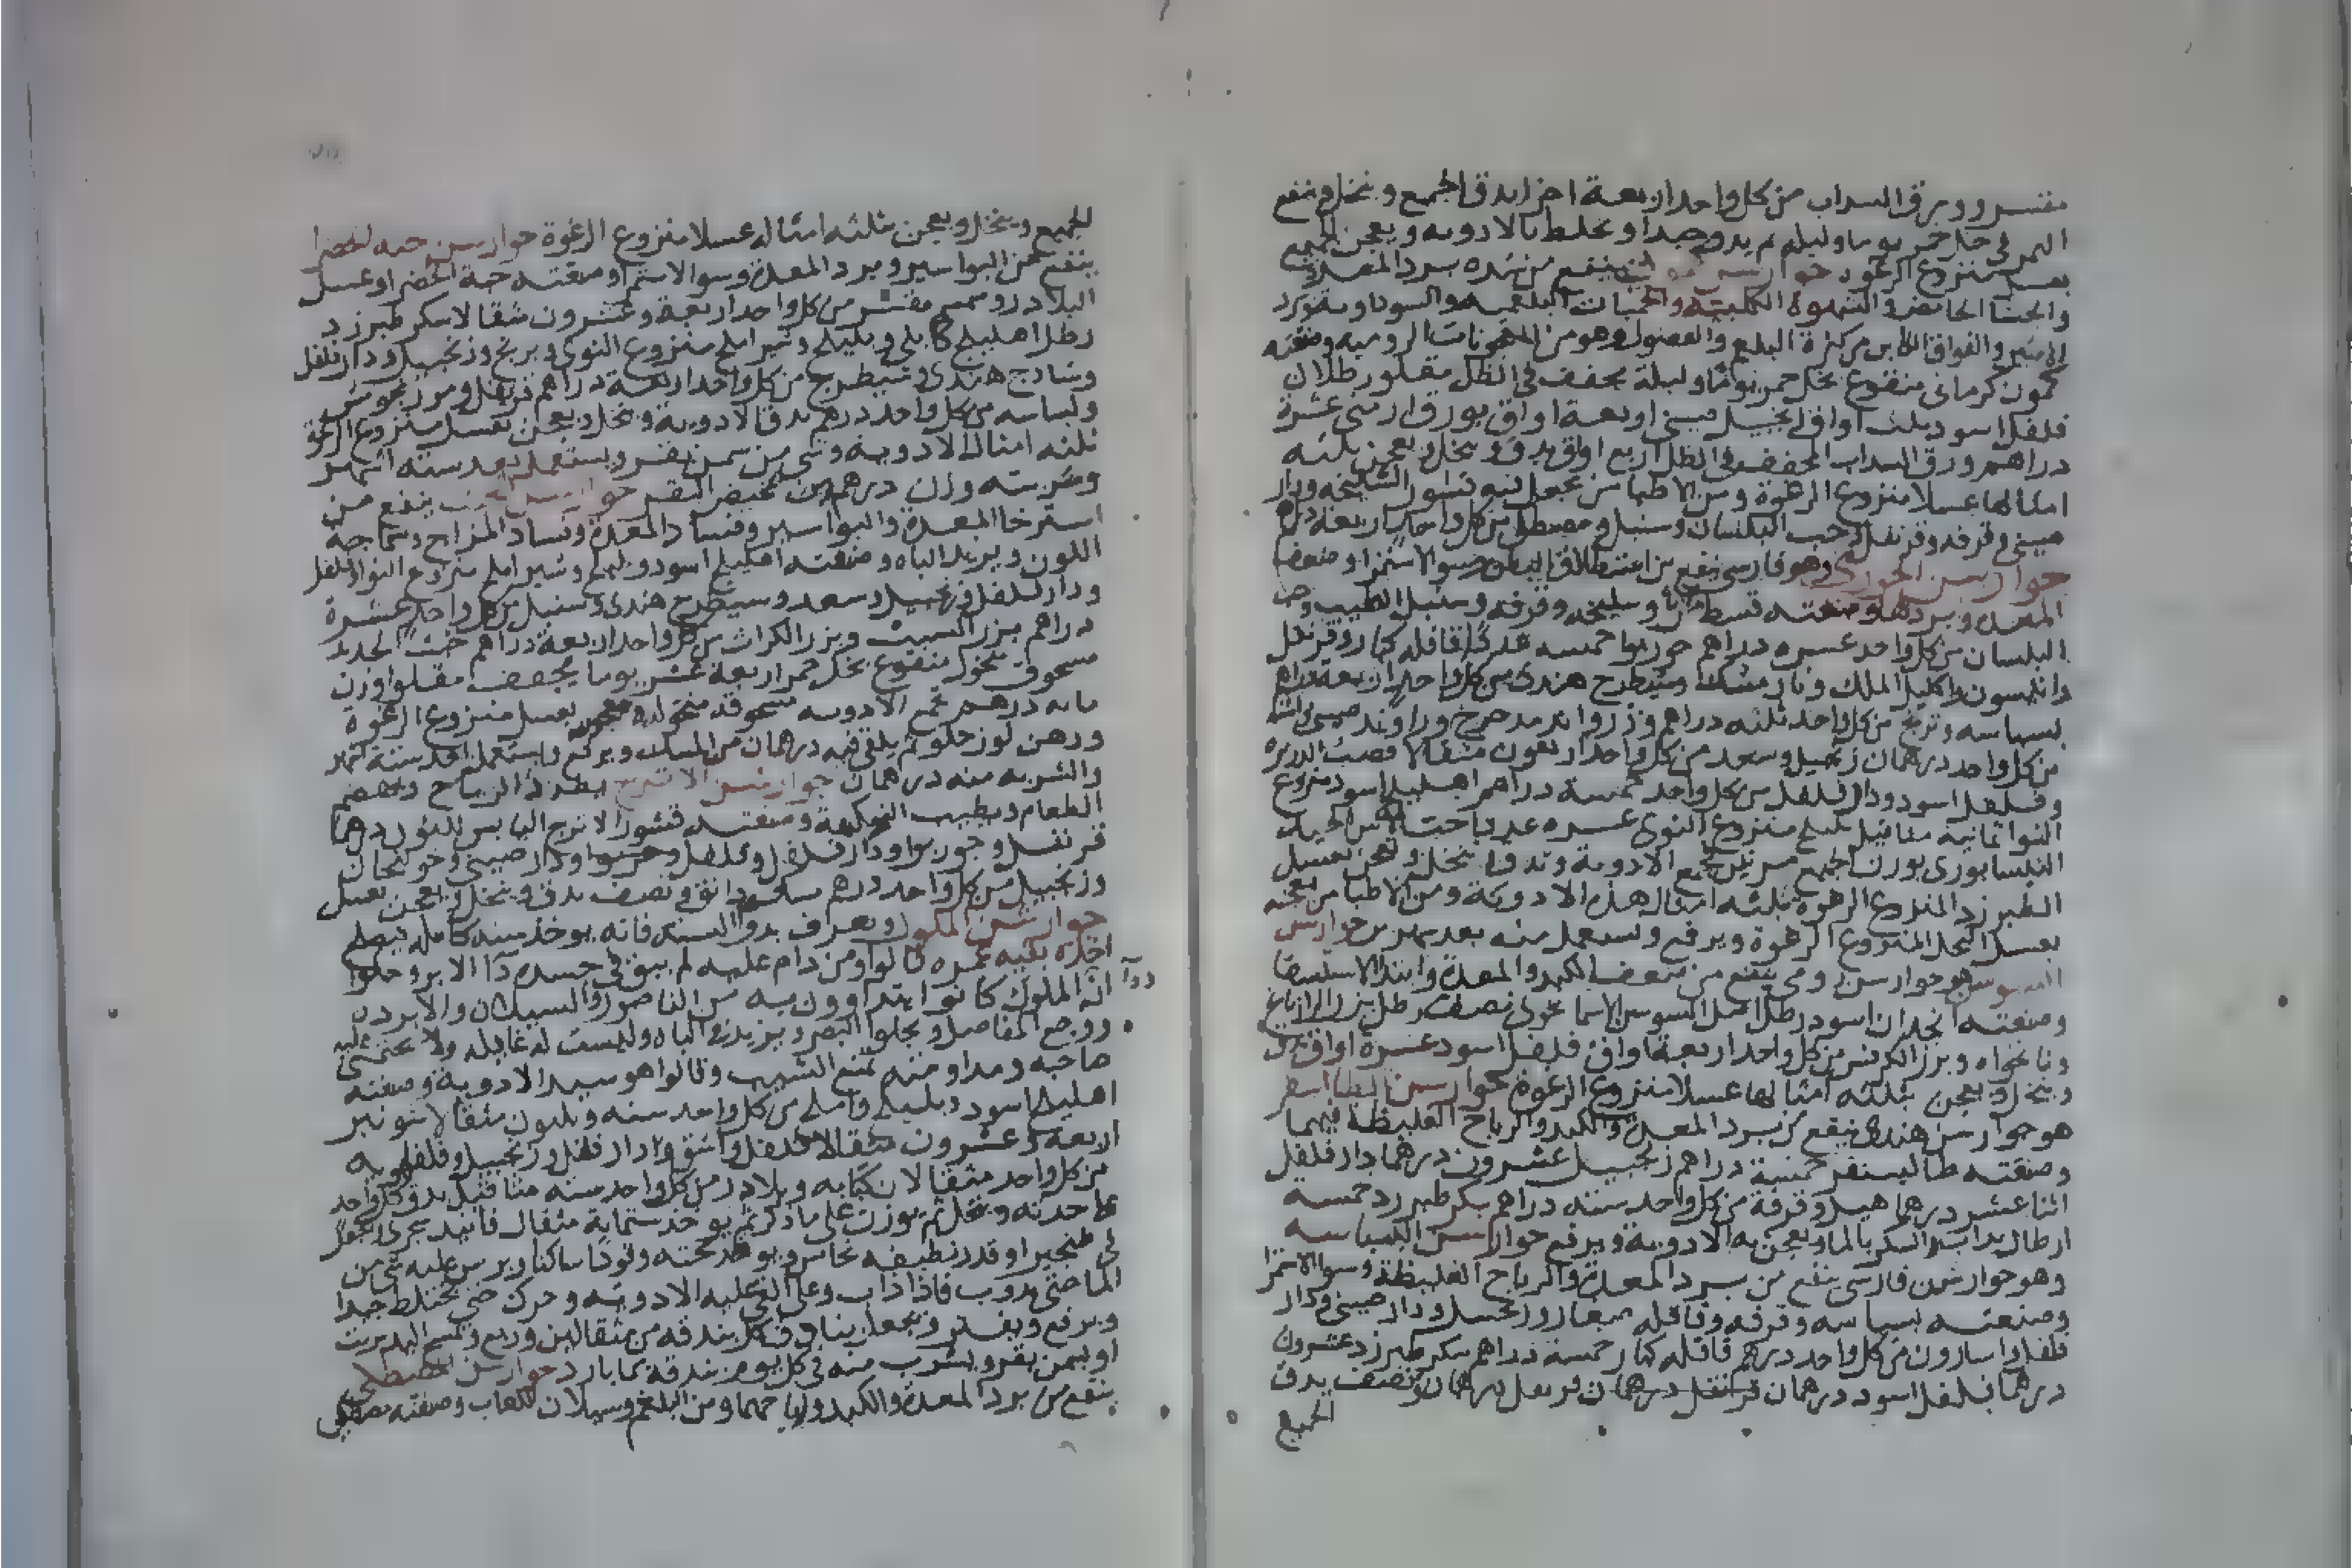 مقشر وورق السداب من كل واحد اربعة اجزا يدق الجميع وينخل وينقع
التمر في خل خمر يوما وليلة ثم يدق جيدا ويخلط بالادويه ويعجن الجميع
بعسل منزوع الرغوه ينفع من شده برد المعدة
والجشا الحامض والشهوة الكلبيه والحميات البلغميه والسوداويه وبرد
والفواق الكاين من كثرة البلغم والفضول وهو من المعجونات الروميه وصنعته
كمون كرماني منقوع بخل خمر يوما وليلة يجفف في الظل مقلو رطلان
فلفل اسود ثلث اواق زنجبيل صيني اربعة اواق بورق ارمني عشرة
دراهم ورق السداب المجفف في الظل اربع اواق يدق وينخل ويعجن بثلثه
امثالها عسلا منزوع الرغوة ومن الاطبا من يجعل فيه قشور السليخه ودار
صيني وقرفه وقرنفل وحب البلسان وسنبل ومصطكى من كل واحد اربعة دراهم
جوارسن الخوزي وهو فارسي ينفع من استطلاق البطن وسو الاستمرا وضعف
المعده وبردها وصنعته قسط وسليخه وقرفه وسنبل الطيب وحب
البلسان من كل واحد عشره دراهم جوزبوا خمسه عددا قاقله كبار وقرنفل
وانيسون واكليل الملك ونارمشك وشيطرج هندي من كل واحد اربعة دراهم
بسباسه من كل واحد ثلثه دراهم وزراوند مدحرج وراوند صيني
من كل واحد درهمان زنجبيل وسعد من كل واحد اربعون مثقالا قصب الذريره
وفلفل اسود ودار فلفل من كل واحد خمسة دراهم اهليلج اسود منزوع
النوا ثمانية مثاقيل بليلج منزوع النوى عشره عددا حب الاس
النيسابوري بوزن الجميع تجمع الادوية وتدق وتنخل وتعجن بعسل
الطبرزد المنزوع الرغوة ثلثه امثال هذه الادوية ومن الاطبا من يعجنه
بعسل النحل المنزوع الرغوة ويرفع ويستعمل منه بعد شهرين جوارسن
السوسن ينفع من ضعف الكبد والمعدة وابتدا الاستسقا
وصنعته انجدان اسود رطل اصل السوسن الاسمانجوني نصف رطل بزر الرازيانج
ونانخواه وبزر الكرفس من كل واحد اربعة اواق فلفل اسود عشرة اواق يدق
وينخل ويعجن بثلثه امثالها عسلا منزوع الرغوة جوارسن الطاليسفر
هو جوارسن هندي ينفع من برد المعدة والكبد والرياح الغليظة فيهما
وصنعته طاليسفر خمسة دراهم زنجبيل عشرون درهما دار فلفل
اثنا عشر درهما هيل وقرفة من كل واحد ستة دراهم سكر طبرزد خمسه
ارطال يذاب السكر بالما ويعجن به الادوية ويرفع جوارسن البسباسه
وهو جوارشن فارسي ينفع من برد المعدة والرياح الغليظة وسو الاستمرا
وصنعته بسباسه وقرفه وقاقله صغار وزنجبيل ودار صيني ودار
فلفل واسارون من كل واحد درهم قاقله كبار خمسة دراهم سكر طبرزد عشرون
درهما فلفل اسود درهمان قرنفل درهمان ونصف يدق
الجميع
الجميع وينخل ويعجن بثلثه امثاله عسلا منزوع الرغوة جوارسن حبه الخضرا
ينفع من البواسير وبرد المعدة وسو الاستمرا وصنعته حبة الخضرا وعسل
البلادر وسمسم مقشر من كل واحد اربعة وعشرون مثقالا سكر طبرزد
رطل اهليلج كابلي وبليلج وشير املج منزوع النوى وبرنج وزنجبيل ودار فلفل
وسادج هندي وشيطرج من كل واحد اربعة دراهم قرنفل ومرزنجوش
وبسباسه من كل واحد درهم يدق الادوية وينخل ويعجن بعسل منزوع الرغوة
ثلثه امثال الادوية وشي من سمن بقر ويستعمل بعد ستة اشهر
وشربته وزن درهمين بمخيض البقر ينفع من
استرخا المعدة والبواسير وفساد المعدة وفساد المزاج وسماجه
اللون ويزيد الباه وصنعته اهليلج اسود وبليلج وشير املج منزوع النوا وفلفل
ودار فلفل وزنجبيل وسعد وشيطرج هندي وسنبل من كل واحد عشرة
دراهم بزر الشبث وبزر الكراث من كل واحد اربعة دراهم خبث الحديد
مسحوق منخول منقوع بخل خمر اربعة عشر يوما يجفف مقلوا وزن
مايه درهم تجمع الادويه مسحوقه منخوله وتعجن بعسل منزوع الرغوة
ودهن لوز حلو ثم يلقى فيه درهمان من المسك ويرفع ويستعمل بعد ستة اشهر
والشربه منه درهمان جوارشن الاترج يطرد الرياح ويهضم
الطعام ويطيب النكهة وصنعته قشور الاترج اليابس ثلثون درهما
قرنفل وجوزبوا ودار فلفل وفلفل ودار صيني وخولنجان
وزنجبيل من كل واحد درهم مسك دانق ونصف يدق وينخل ويعجن بعسل
جوارشن الملوك ويعرف بدوا السنه فانه يوخذ سنه كامله فيصلح
اخذه بقيه عمره قالوا ومن دام عليه لم يبق في جسده دآ الا برو حلوا
انه دوآ الملوك كانوا يتداوون به من الناصور والسيلان والابرده
ووجع المفاصل ويجلوا البصر ويزيد في الباه وليست له غايله ولا يحتمي عليه
صاحبه ومداومته تمنع الشيب وقالوا هو سيد الادوية وصنعته
اهليلج اسود وبليلج واملج من كل واحد سته وثلثون مثقالا شونيز
اربعة وعشرون مثقالا فلفل واشق ودار فلفل وزنجبيل وفلفلمويه
من كل واحد مثقالان كبابه وبلادر من كل واحد سته مثاقيل يدق كل واحد
على حدته وينخل ثم يوزن على ما ذكر ثم يوخذ ستماية مثقال فانيد سجزي
في طنجير او قدر نظيفه نحاس ويوقد تحته وقودا ساكنا ويرش عليه شي من
الما حتى يذوب فاذا ذاب وغلا القي عليه الادويه وحرك حتى يختلط جيدا
ويرفع ويفتر ويجعل بنادق كل بندقه من مثقالين وربع
او بسمن بقر ويشرب منه في كل يوم بندقة بما بارد جوارسن المصطكى
ينفع من برد المعدة والكبد ومن البلغم وسيلان اللعاب وصنعته مصطكى